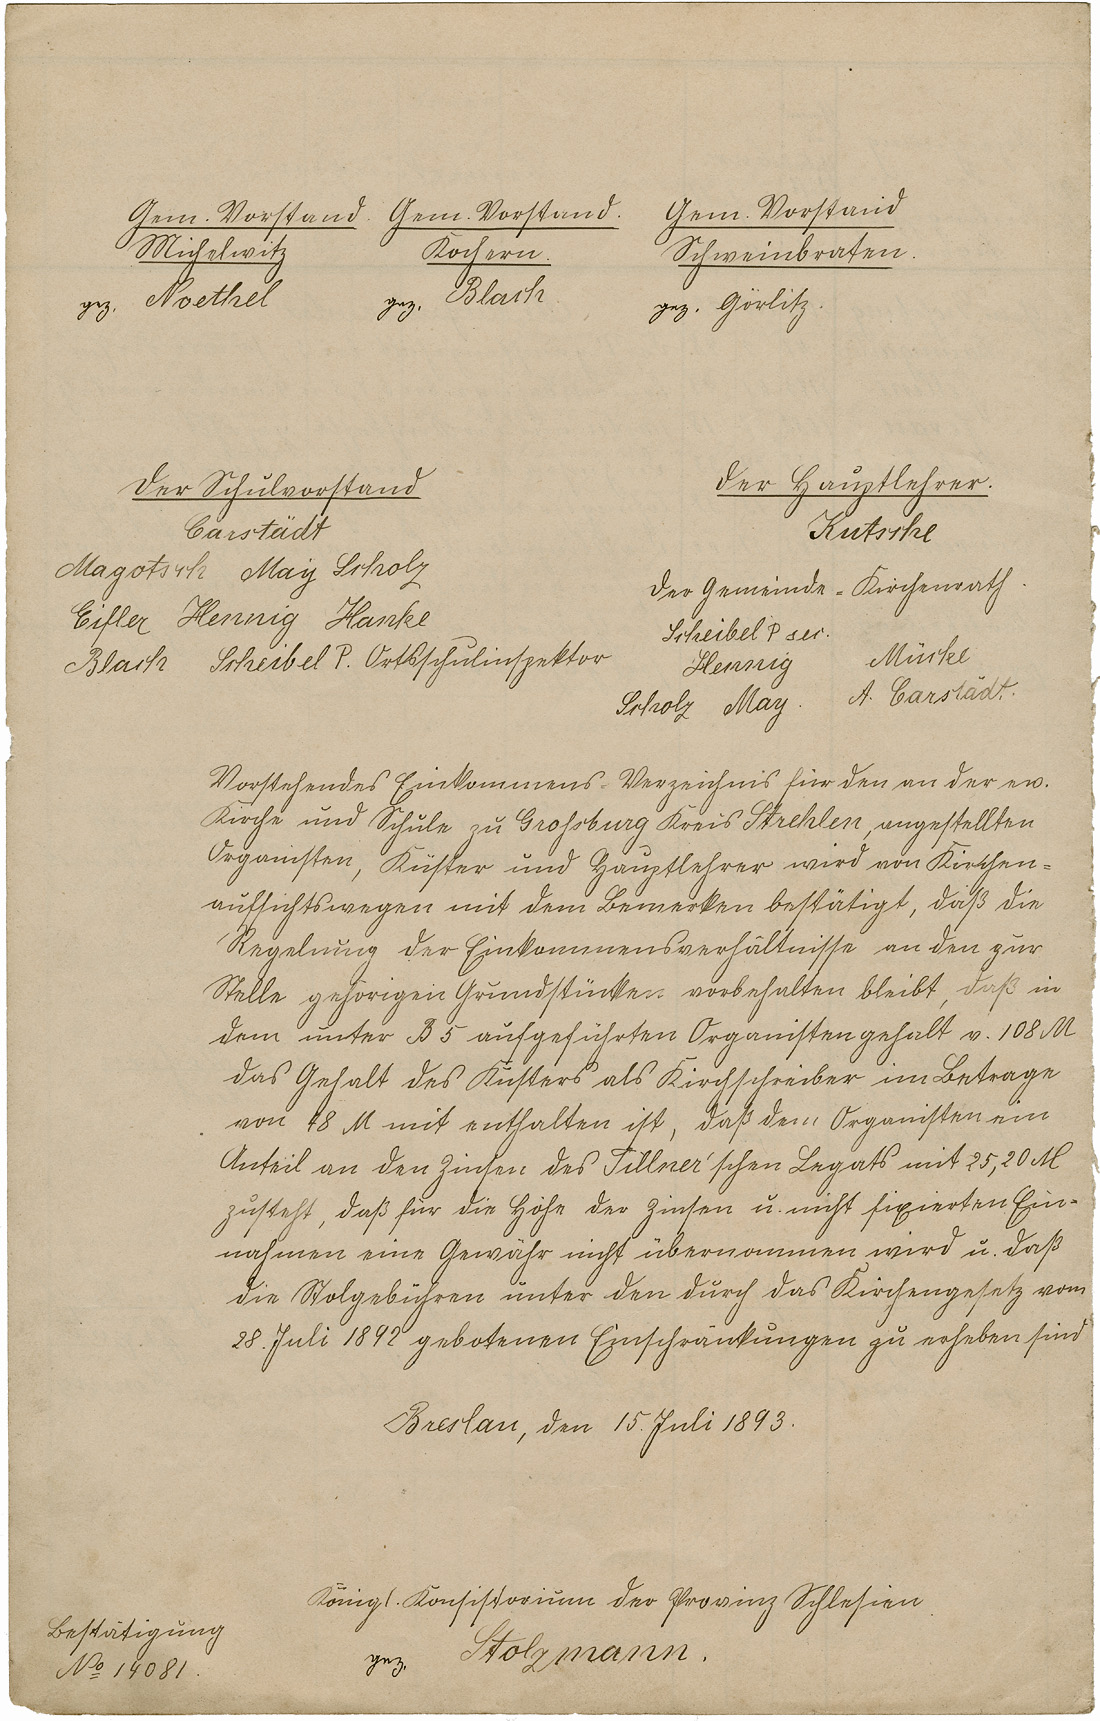 Gem. Vorstand. Gem. Vorstand. Gem. Vorstand
Michelwitz Kochern. Schweinbraten.
gez. Noethel gez. Blach gez. Görlitz.
Der Schulvorstand
Carstädt
Magotsch May Scholz
Eifler Hennig Hanke
Blach Scheibel P. Ortsschulinspektor
Der Hauptlehrer.
Kutsche
Der Gemeinde-Kirchenrath.
Scheibel P sec.
Hennig Mücke
Scholz May. A. Carstädt.
Vorstehendes Einkommens-Verzeichnis für den an der ev.
Kirche und Schule zu Grossburg Kreis Strehlen, angestellten
Organisten, Küster und Hauptlehrer wird von Kirchen-
aufsichtswegen mit dem Bemerken bestätigt, daß die
Regelung der Einkommensverhältnisse an den zur
Stelle gehörigen Grundstücken vorbehalten bleibt, daß in
dem unter B 5 aufgeführten Organistengehalt v. 108 M
das Gehalt des Küsters als Kirchschreiber im Betrage
von 48 M mit enthalten ist, daß dem Organisten ein
Anteil an den Zinsen des Tillner'schen Legats mit 25,20 M
zusteht, daß für die Höhe der Zinsen u. nicht fixierten Ein-
nahmen eine Gewähr nicht übernommen wird u. daß
die Stolgebühren unter den durch das Kirchengesetz vom
28. Juli 1892 gebotenen Einschränkungen zu erheben sind
Breslau, den 15. Juli 1893.
Königl. Konsistorium der Provinz Schlesien
gez. Stolzmann.
Bestätigung
No 14081.